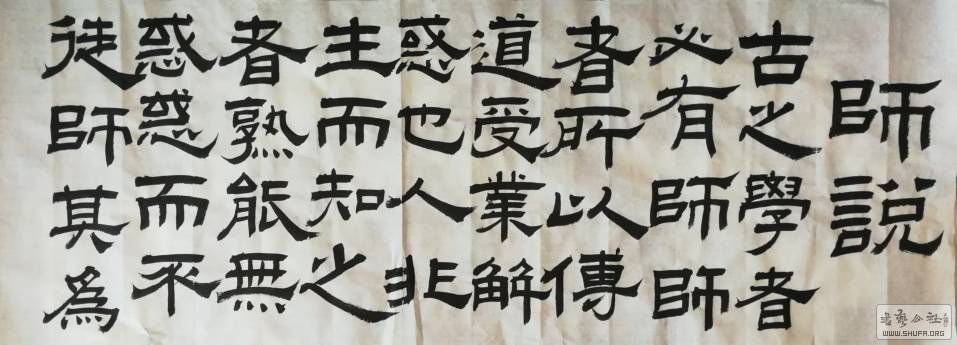 師說
古之學者
必有師師
者所以傳
道受業解
惑也人非
生而知之
者熟能無
惑惑而不
徒師其爲
书艺公社
WWW.SHUFA.ORG